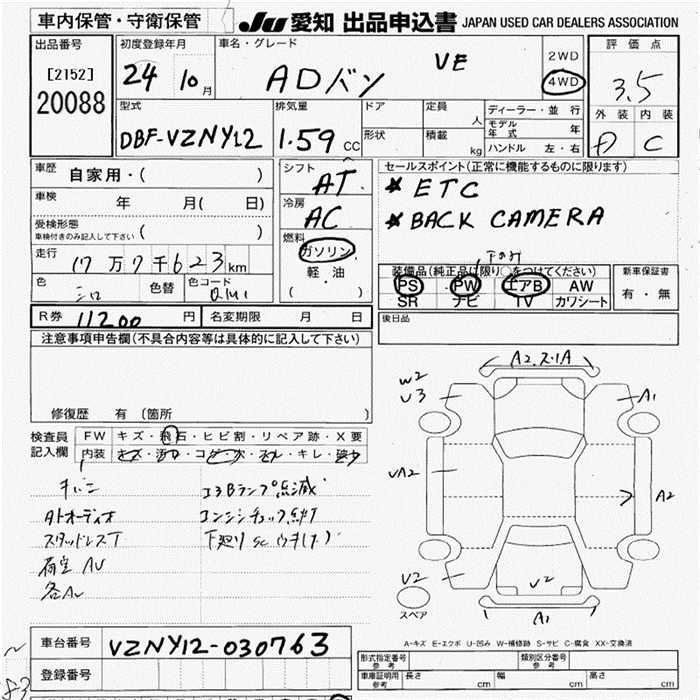 車内保管・守衛保管
JU 愛知 出品申込書 JAPAN USED CAR DEALERS ASSOCIATION
出品番号
[2152]
20088
初度登録年月
24 10月
車名・グレード
ADバン VE
2WD
4WD
評価点
3.5
外装 内装
D C
型式
DBF-VZNY12
排気量
1.59 CC
ドア
形状
定員 人
積載 kg
ディーラー・並行
モデル年式 年
ハンドル 左・右
車歴 自家用・( )
車検 年 月( 日)
受検形態 ( )
車検付きのみ記入して下さい
走行 17万7千623km
色 シロ 色替 色コード QM1
シフト AT
冷房 AC
燃料 ガソリン
軽油
( )
セールスポイント(正常に機能するものに限ります)
* ETC
* BACK CAMERA
装備品(純正品に限り○をつけてください)
PS PW エアB AW
SR ナビ TV カワシート
新車保証書
有・無
R券 11200 円 名変期限 月 日
後日品
注意事項申告欄(不具合内容等は具体的に記入して下さい)
修復歴 有 (箇所 )
検査員記入欄
FW キズ・飛石・ヒビ割・リペア跡・X要
内装 キズ・汚れ・コゲ・穴・スレ・キレ・破れ
エアBランプ点滅
外オーディオ エンジンチェック点灯
スタッドレスT
荷室AU
各AU
A2.ヌ.1A
W2
U3
A1
UA2
A2
U2
U2
A1
スペア
A-キズ E-エクボ U-凹み W-補修跡 S-サビ C-腐食 XX-交換済
車台番号 VZNY12-030763
登録番号
形式指定番号 参考
類別区分番号 参考
車庫証明用 参考 長さ cm 幅 cm 高さ cm